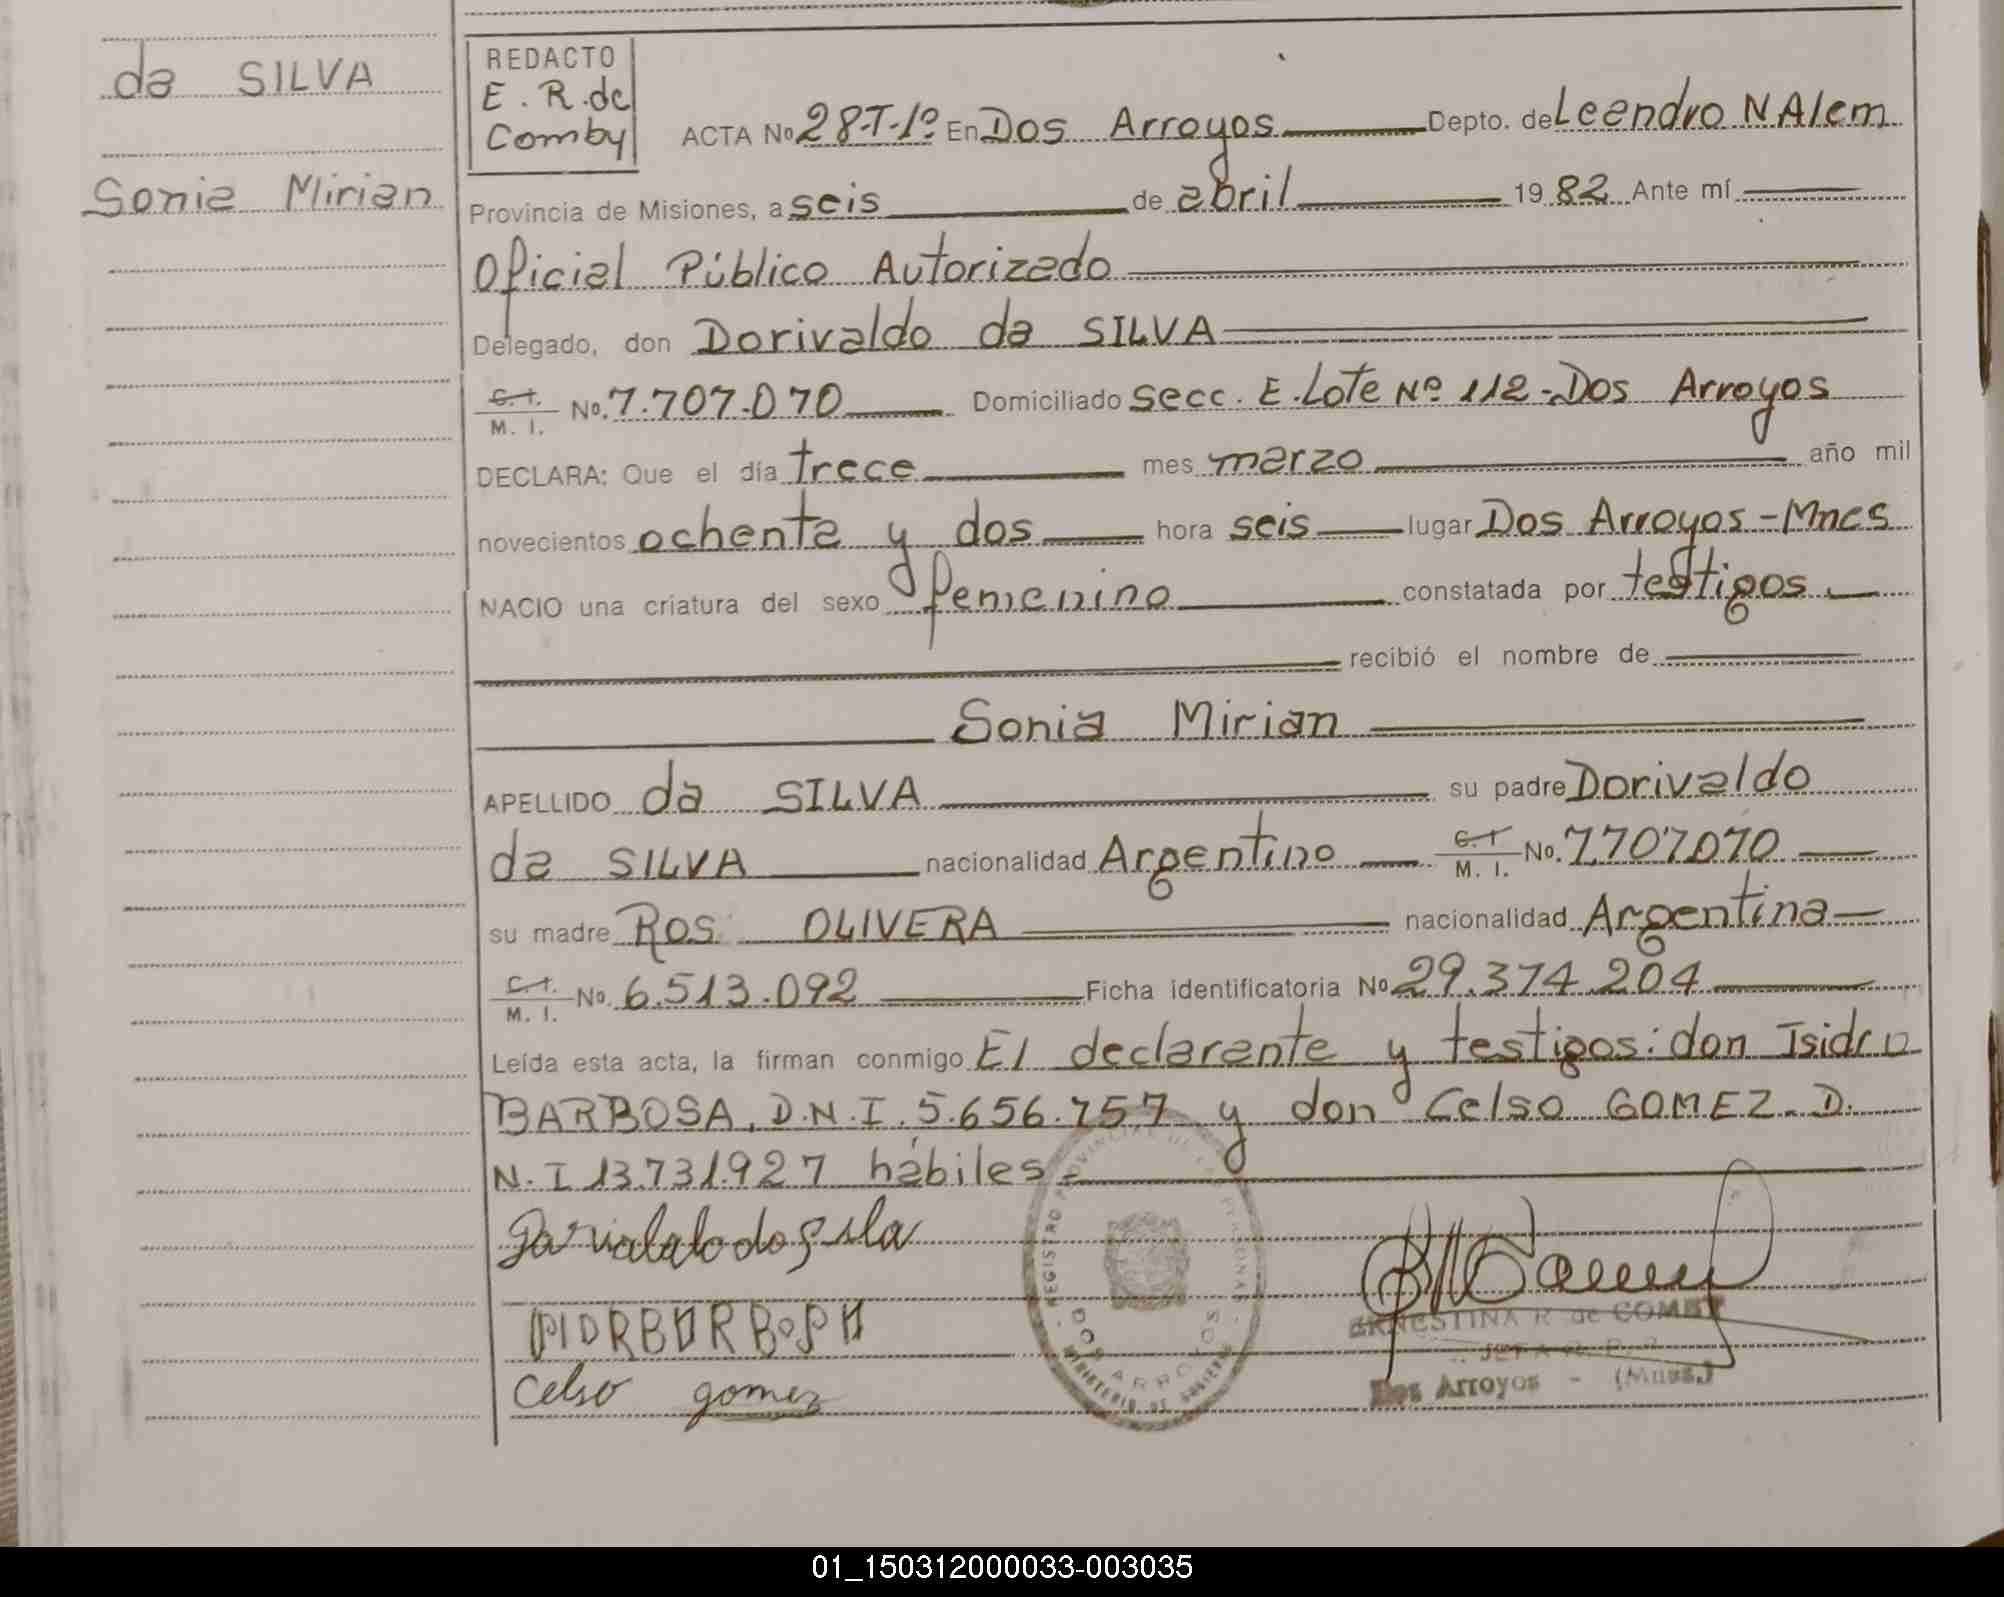 da SILVA
Sonia Mirian
REDACTO
E. R. de
Comby
ACTA No 28-T-1º En Dos Arroyos Depto. de Leandro N Alem
Provincia de Misiones, a seis de abril 19 82 Ante mí
Oficial Público Autorizado
Delegado, don Dorivaldo da SILVA
C. I.
M. I. No. 7.707.070 Domiciliado Secc. E. Lote Nº 112 - Dos Arroyos
DECLARA: Que el día trece mes marzo año mil
novecientos ochenta y dos hora seis lugar Dos Arroyos - Mnes
NACIO una criatura del sexo femenino constatada por testigos
recibió el nombre de
Sonia Mirian
APELLIDO da SILVA su padre Dorivaldo
da SILVA nacionalidad Argentino C. I. M. I. No. 7.707.070
su madre Ros OLIVERA nacionalidad Argentina
C. I.
M. I. No. 6.513.092 Ficha identificatoria No 29.374.204
Leída esta acta, la firman conmigo El declarante y testigos: don Isidro
BARBOSA, D.N.I. 5.656.757 y don Celso GOMEZ - D.
N. I 13.731.927 hábiles -
REGISTRO PROVINCIAL DE LAS PERSONAS
DOS ARROYOS
MINISTERIO DE GOBIERNO
ERNESTINA R de COMBY
Celso gomez
Dos Arroyos - (Mnes.)
01_150312000033-003035